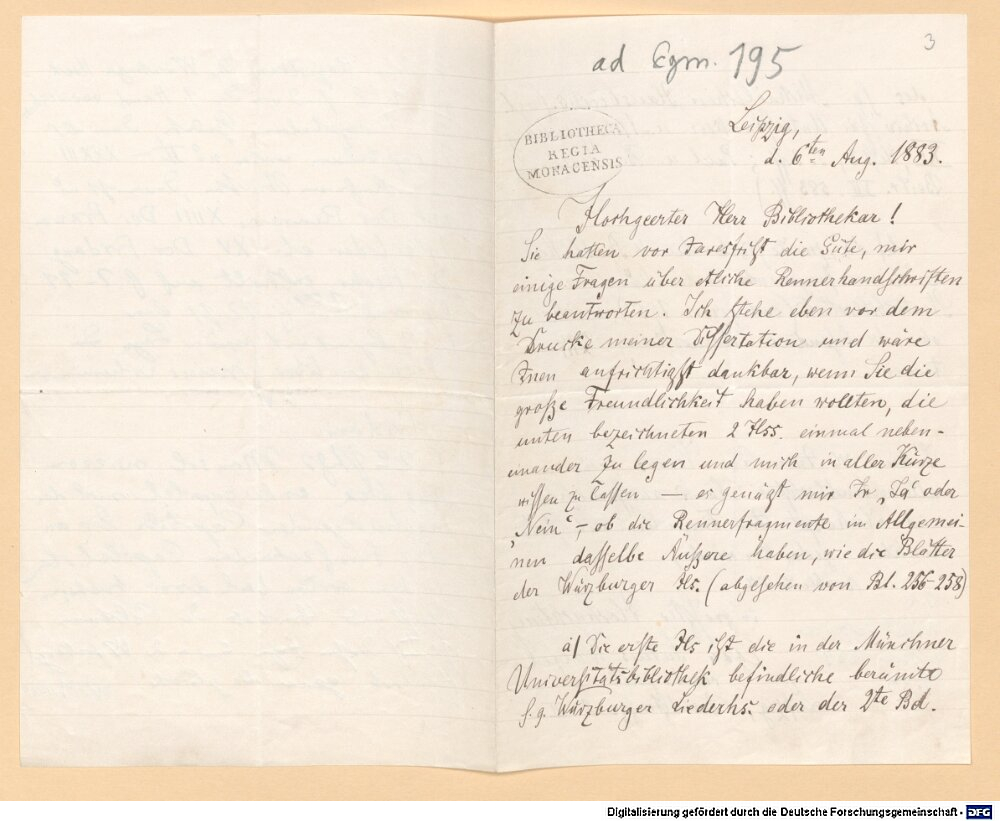 3
ad Cgm. 195
BIBLIOTHECA
REGIA
MONACENSIS
Leipzig,
d. 6ten Aug. 1883.
Hochgeerter Herr Bibliothekar!
Sie hatten vor Jaresfrist die Güte, mir
einige Fragen über etliche Rennerhandschriften
zu beantworten. Ich stehe eben vor dem
Drucke meiner Dissertation und wäre
Inen aufrichtigst dankbar, wenn Sie die
große Freundlichkeit haben wollten, die
unten bezeichneten 2 Hss. einmal neben-
einander zu legen und mich in aller Kürze
wissen zu lassen — es genügt mir Ir „Ja“ oder
„Nein“ –, ob die Rennerfragmente im Allgemei-
nen dasselbe Äußere haben, wie die Blätter
der Würzburger Hs. (abgesehen von Bl. 256-258)
a) Die erste Hs ist die in der Münchner
Universitätsbibliothek befindliche berümte
s. g. Würzburger Liederhs. oder der 2te Bd.
Digitalisierung gefördert durch die Deutsche Forschungsgemeinschaft - DFG